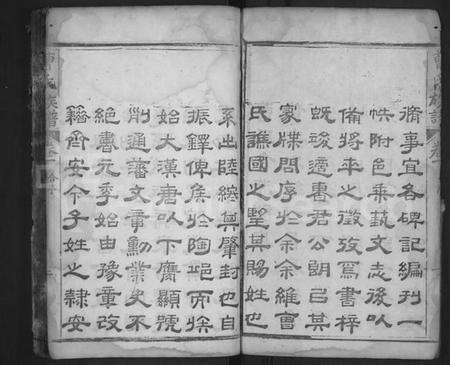 脩事宜各碑記編刊一
帙附邑乘藝文志後以
備將來之徵攷焉書梓
既竣適書君公朗已其
家牒問序於余余維曹
氏譙國之望其賜姓也
系出陸綜其肇封也自
振鐸俾侯於陶邱而族
始大漢唐以下麝顯號
削通藩文章勳業史不
絕書元季始由豫章改
籍齊安今子姓之隸安